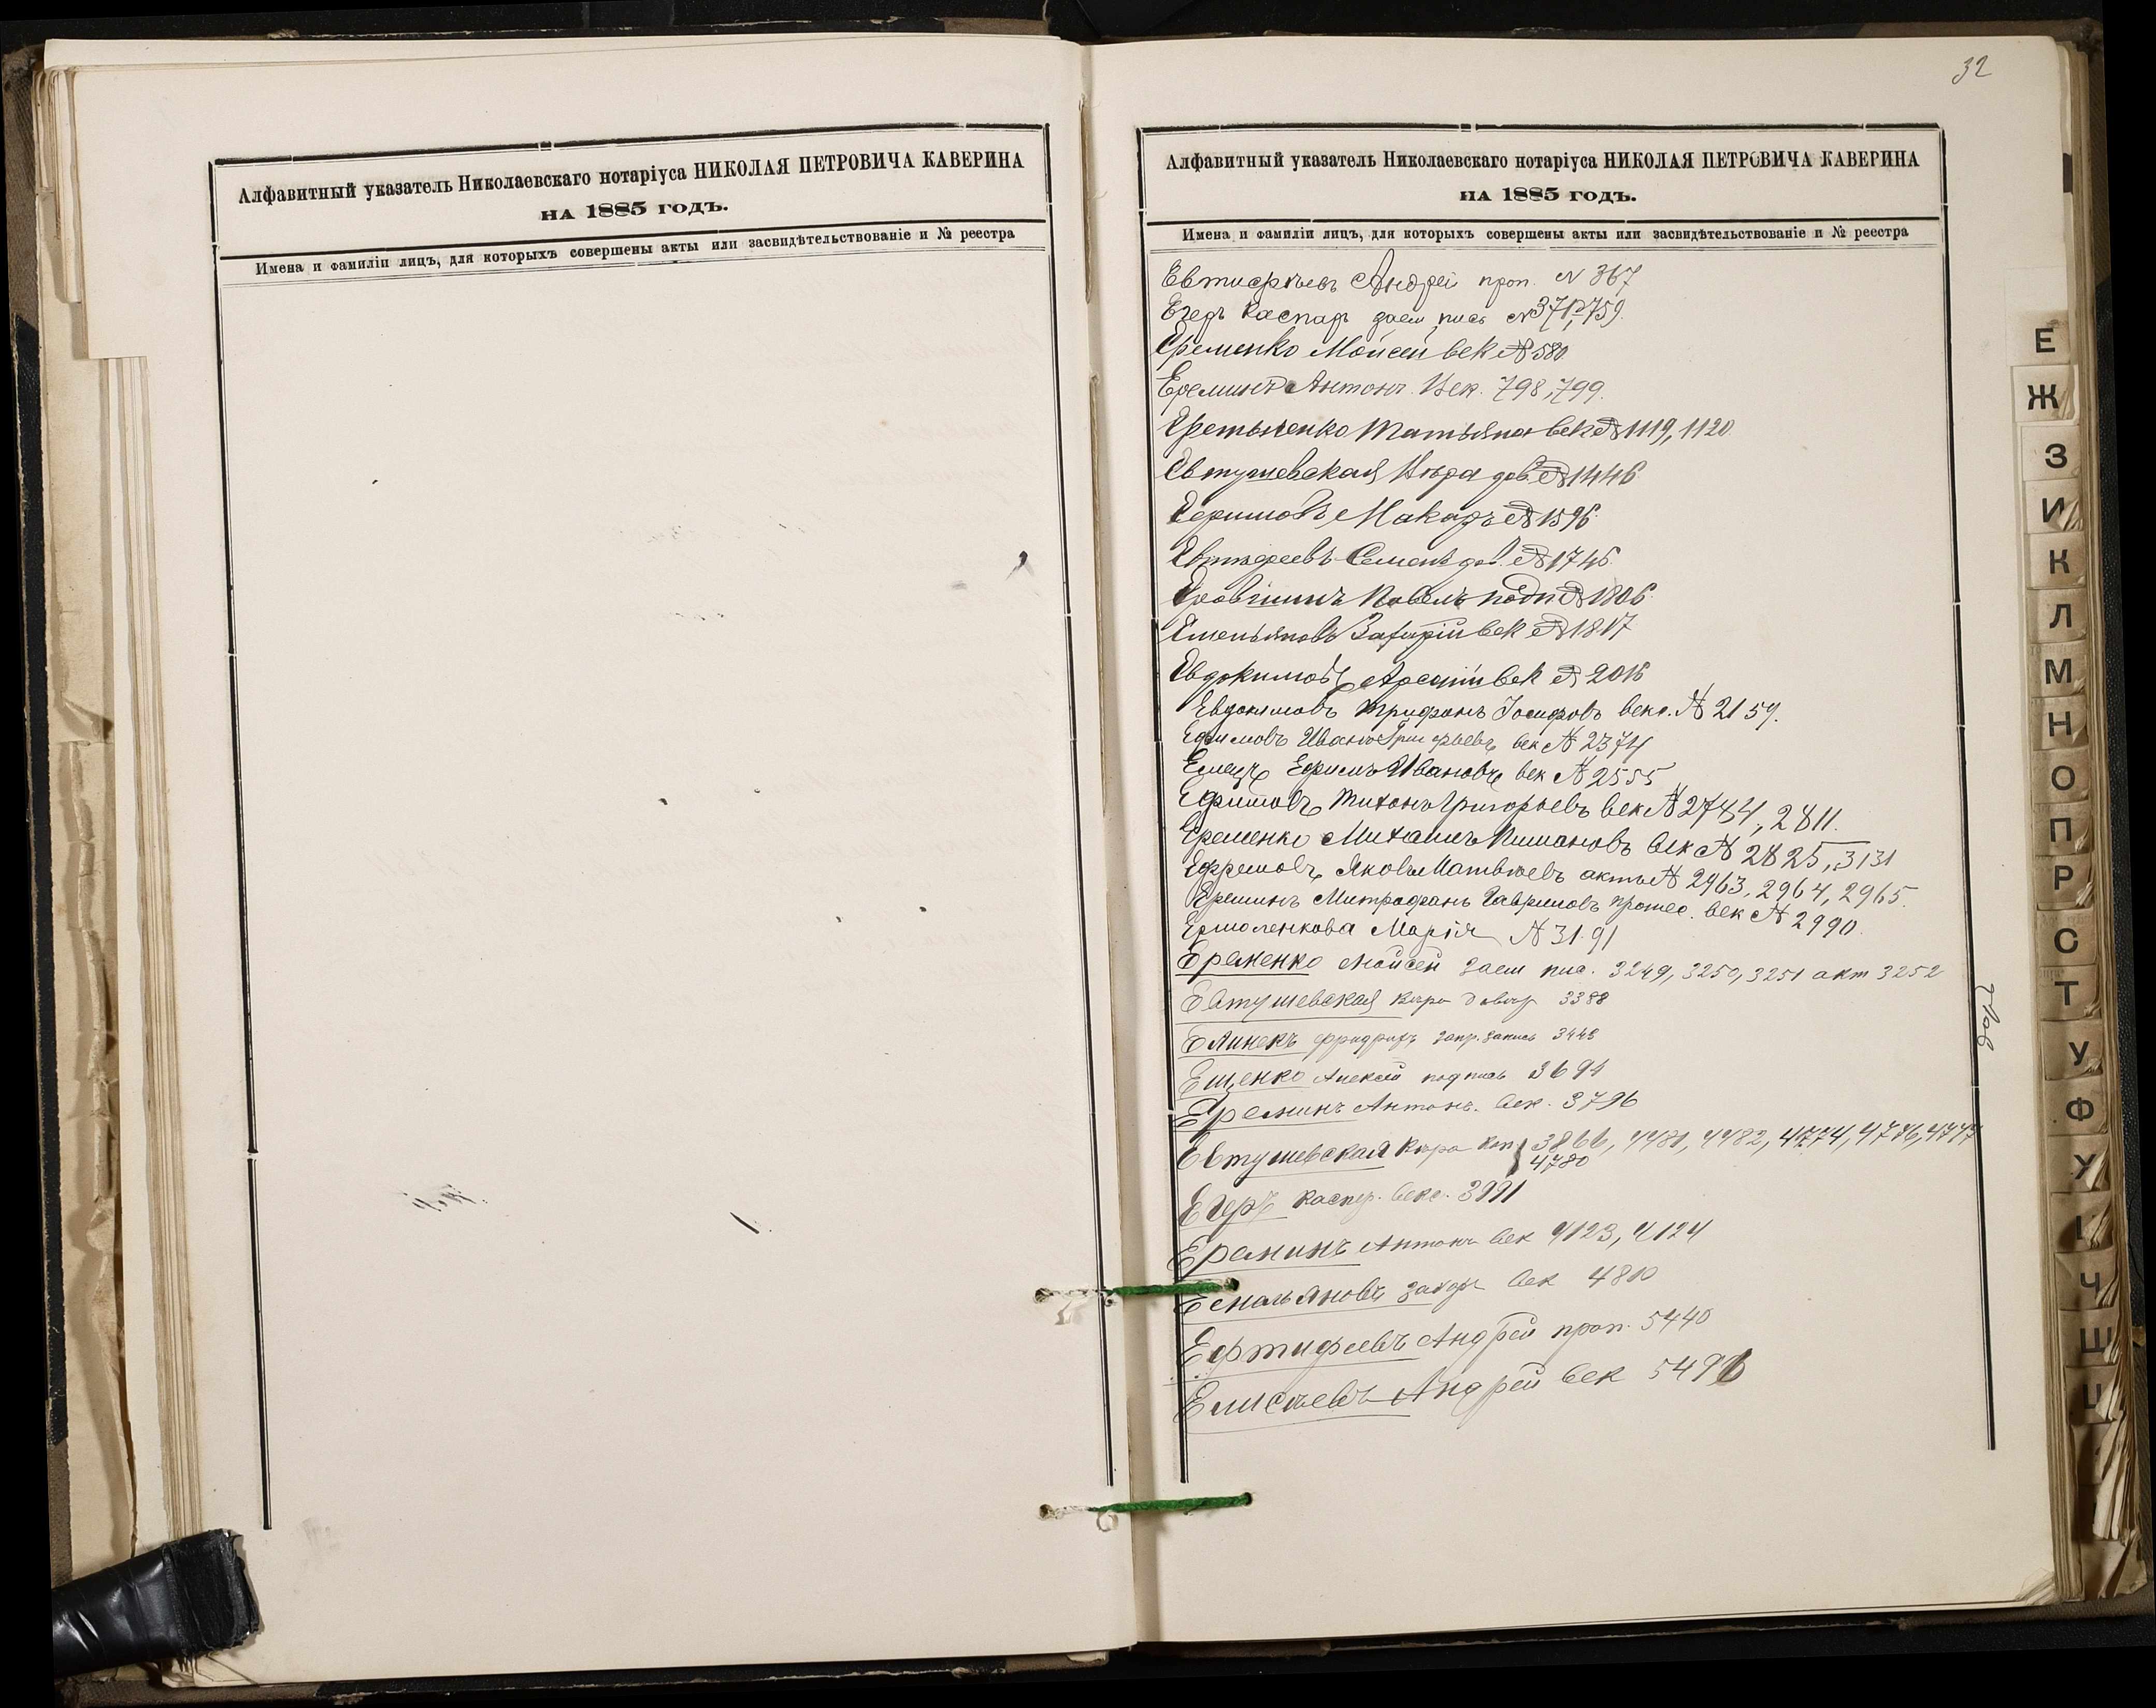 Алфавитный указатель Николаевскаго нотаріуса НИКОЛАЯ ПЕТРОВИЧА КАВЕРИНА
НА 1885 ГОДЪ.
Имена и фамиліи лицъ, для которыхъ совершены акты или засвидѣтельствованіе и № реестра
32
Алфавитный указатель Николаевскаго нотаріуса НИКОЛАЯ ПЕТРОВИЧА КАВЕРИНА
НА 1885 ГОДЪ.
Имена и фамиліи лицъ, для которыхъ совершены акты или засвидѣтельствованіе и № реестра
Андрей проп. № 367
Егеръ Каспаръ заем пись № 759.
Еременко Мойсей век № 580
Ереминъ Антонъ Век. 798, 799.
Татьяна век № 1119, 1120
Евтушевская Вѣра дов. № 1446
Ефимовъ Макаръ № 1596
Семенъ дов. № 1746
подп № 1806
Емельяновъ Захарій век № 1817
Евдокимовъ век № 2016
Евдокимовъ Трифонъ Іосифовъ векс. № 2159.
Ефимовъ Иванъ Григорьевъ век № 2374
Емецъ Ефимъ Ивановъ век № 2555
Ефимовъ Тихонъ Григорьевъ век № 2784, 2811.
Еременко Михаилъ век № 2825, 3131
Ефремовъ Яковъ Матвѣевъ акты № 2963, 2964, 2965.
Ереминъ Митрофанъ Гавриловъ протес. век № 2990.
Ермоленкова Марія № 3191
Еременко Мойсей заем пис. 3249, 3250, 3251 акт 3252
Евтушевская Вѣра довѣр 3388
Елинекъ Фридрихъ запр. запись 3448
Ещенко Алексѣй подпись 3694
Ереминъ Антонъ. век. 3796
Евтушевская Вѣра коп 3866, 4481, 4482, 4774, 4776, 4777
4780
Егеръ Каспер. векс. 3991
Ереминъ Антонъ век 4123, 4124
Емельяновъ Захар век 4810
Ефтифеевъ Андрей проп. 5440
Елисѣевъ Андрей век 5496
Е
Ж
З
И
К
Л
М
Н
О
П
Р
С
Т
У
Ф
Ч
Ш